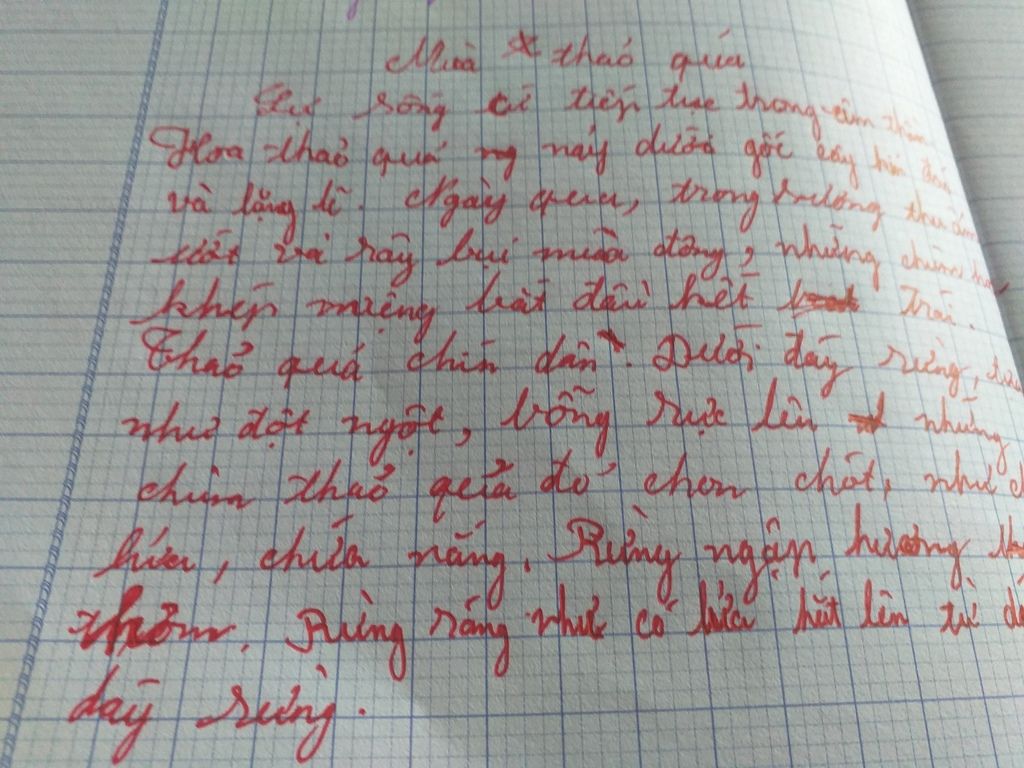 Mùa thảo quả
Sự sống cứ tiếp tục trong âm thầm.
Hoa thảo quả nảy dưới gốc cây kín đáo
và lặng lẽ. Ngày qua, trong sương thu ẩm
ướt và rây bụi mùa đông, những chùm hoa
khép miệng bắt đầu kết trái.
Thảo quả chín dần. Dưới đáy rừng, tựa
như đột ngột, bỗng rực lên những
chùm thảo quả đỏ chon chót, như
lửa, chứa nắng. Rừng ngập hương
thơm. Rừng sáng như có lửa hắt lên từ
đáy rừng.